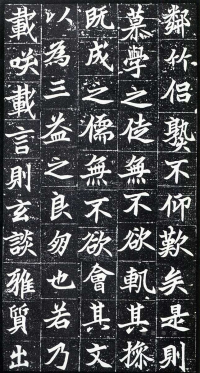 鄰竹侶塾不仰歎矣是則
慕學之徒無不欲軌其操
既成之儒無不欲會其文
以為三益之良朋也若乃
載咲載言則玄談雅質出